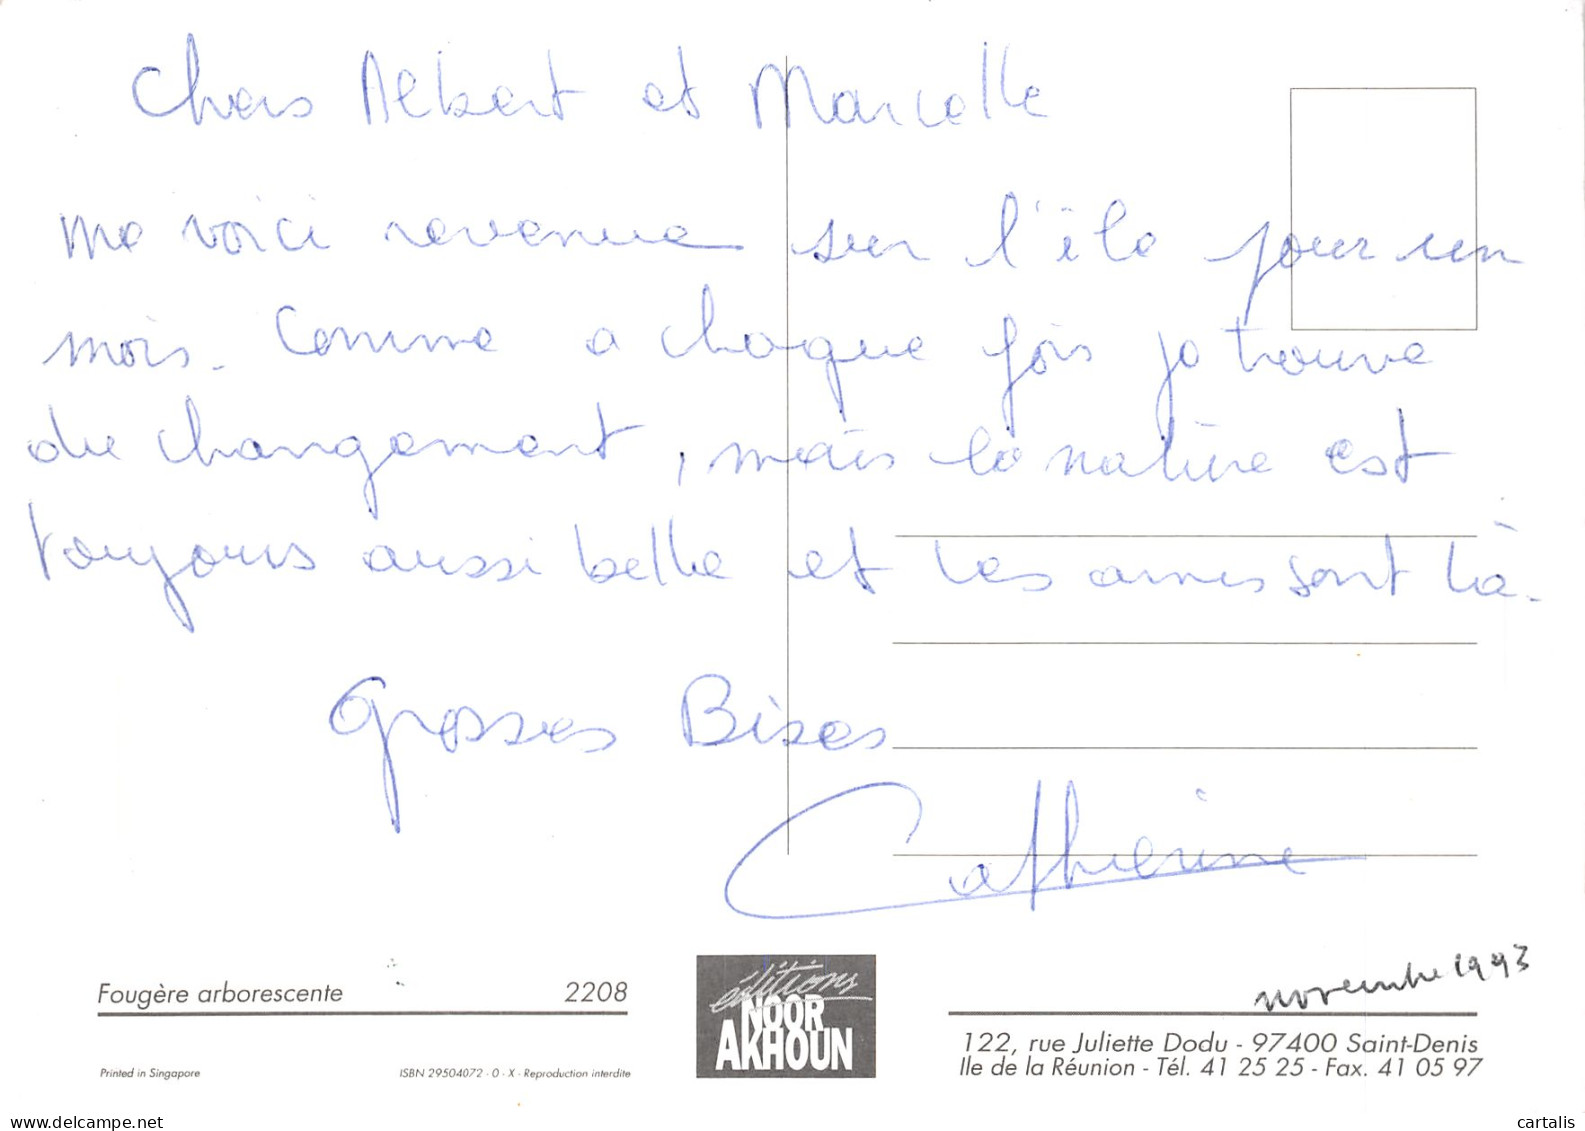 Chers Albert et Marcelle
me voici revenue sur l'île pour un
mois. Comme a chaque fois je trouve
du changement, mais la nature est
toujours aussi belle et les amis sont là.
Grosses Bises
Catherine
novembre 1993
Fougère arborescente 2208
éditions
NOOR
AKHOUN
122, rue Juliette Dodu - 97400 Saint-Denis
Ile de la Réunion - Tél. 41 25 25 - Fax. 41 05 97
Printed in Singapore
ISBN 29504072 - 0 - X - Reproduction interdite
www.delcampe.net
cartalis